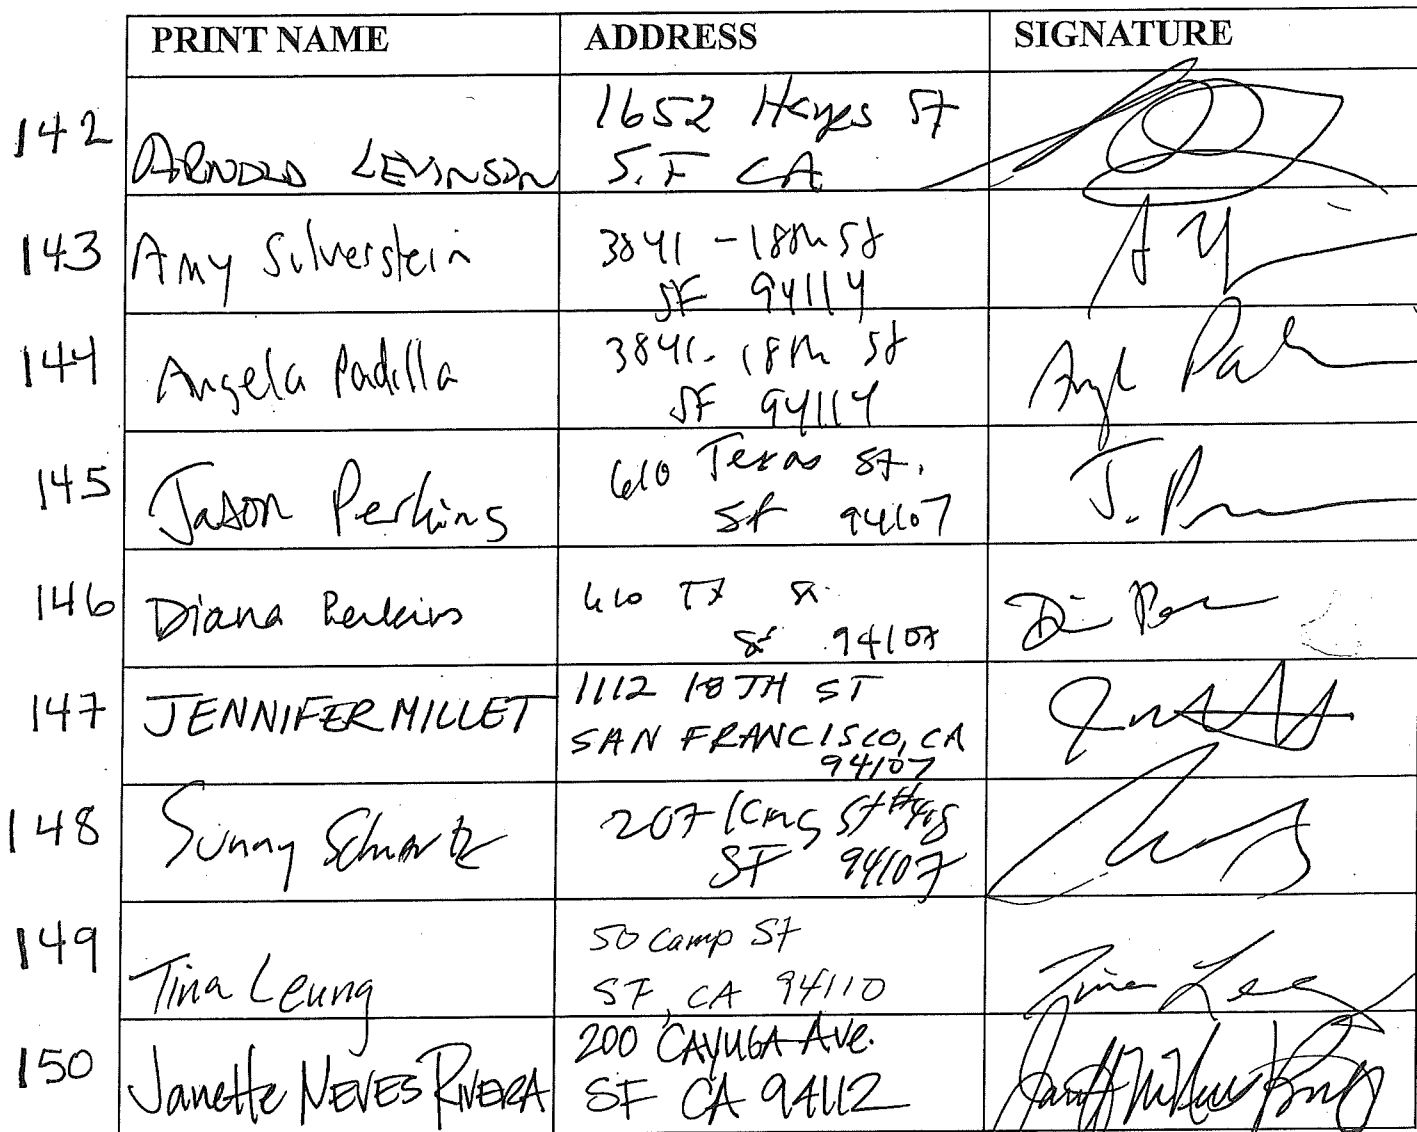 PRINT NAME ADDRESS SIGNATURE
1652 Hayes St
142 ARNOLD LEVINSON S.F CA
143 Amy Silverstein 3841 - 18th St
SF 94114
144 Angela Padilla 3841 - 18th St
SF 94114
145 Jason Perkins 610 Texas St. J. P
SF 94107
146 Diana Perkins 610 TX St.
SF 94107
147 JENNIFER MILLET 1112 18TH ST
SAN FRANCISCO, CA
94107
148 Sunny Schwartz 207 King St
SF 94107
149 Tina Leung 50 Camp St
SF, CA 94110
150 Janette NEVES RIVERA 200 CAYUGA AVE.
SF CA 94112